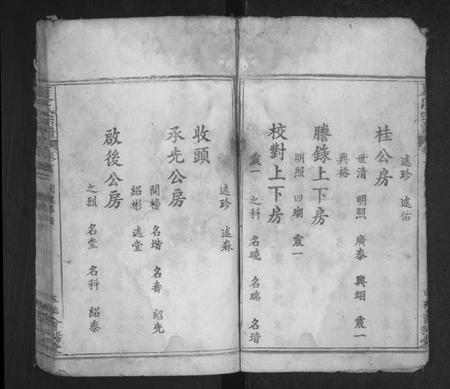 述珍 述佑
桂公房
世清 明照 廣泰 興翊 震一
興裕
謄錄上下房
明照 曰瑚 震一
校對上下房
震一 之科 名曉 名瑞 名堦
述珍 述森
收頭
承先公房
開榜 名堦 名壽 紹先
紹彬 遠堂
啟後公房
之烈 名堂 名科 紹泰